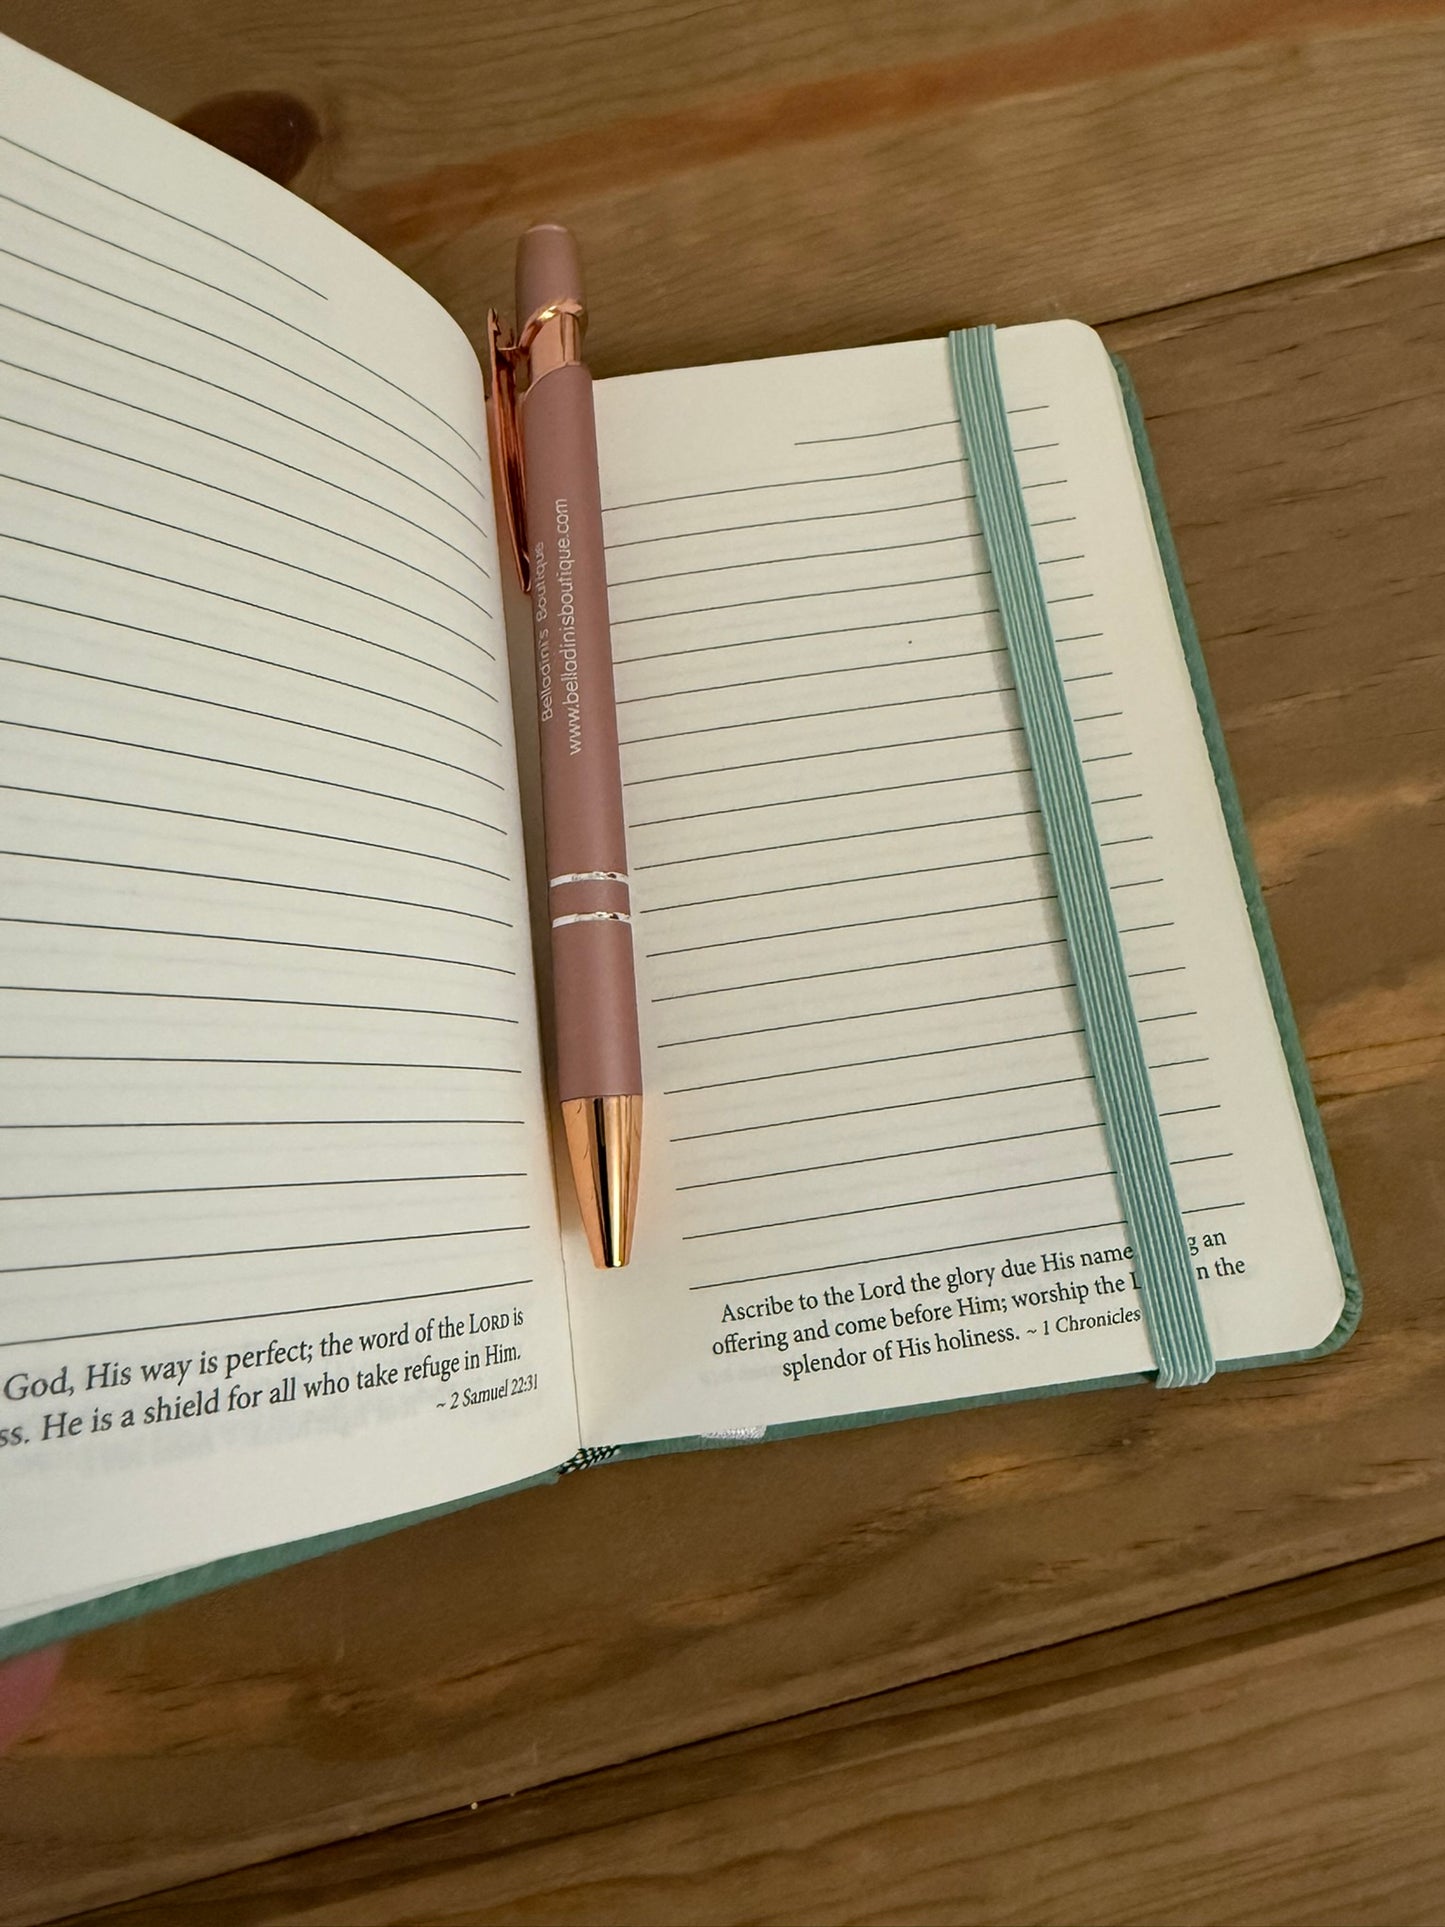 God, His way is perfect; the word of the LORD is
He is a shield for all who take refuge in Him.
~ 2 Samuel 22:31
Belladini's Boutique
www.belladinisboutique.com
Ascribe to the Lord the glory due His name an
offering and come before Him; worship the the
splendor of His holiness. ~ 1 Chronicles